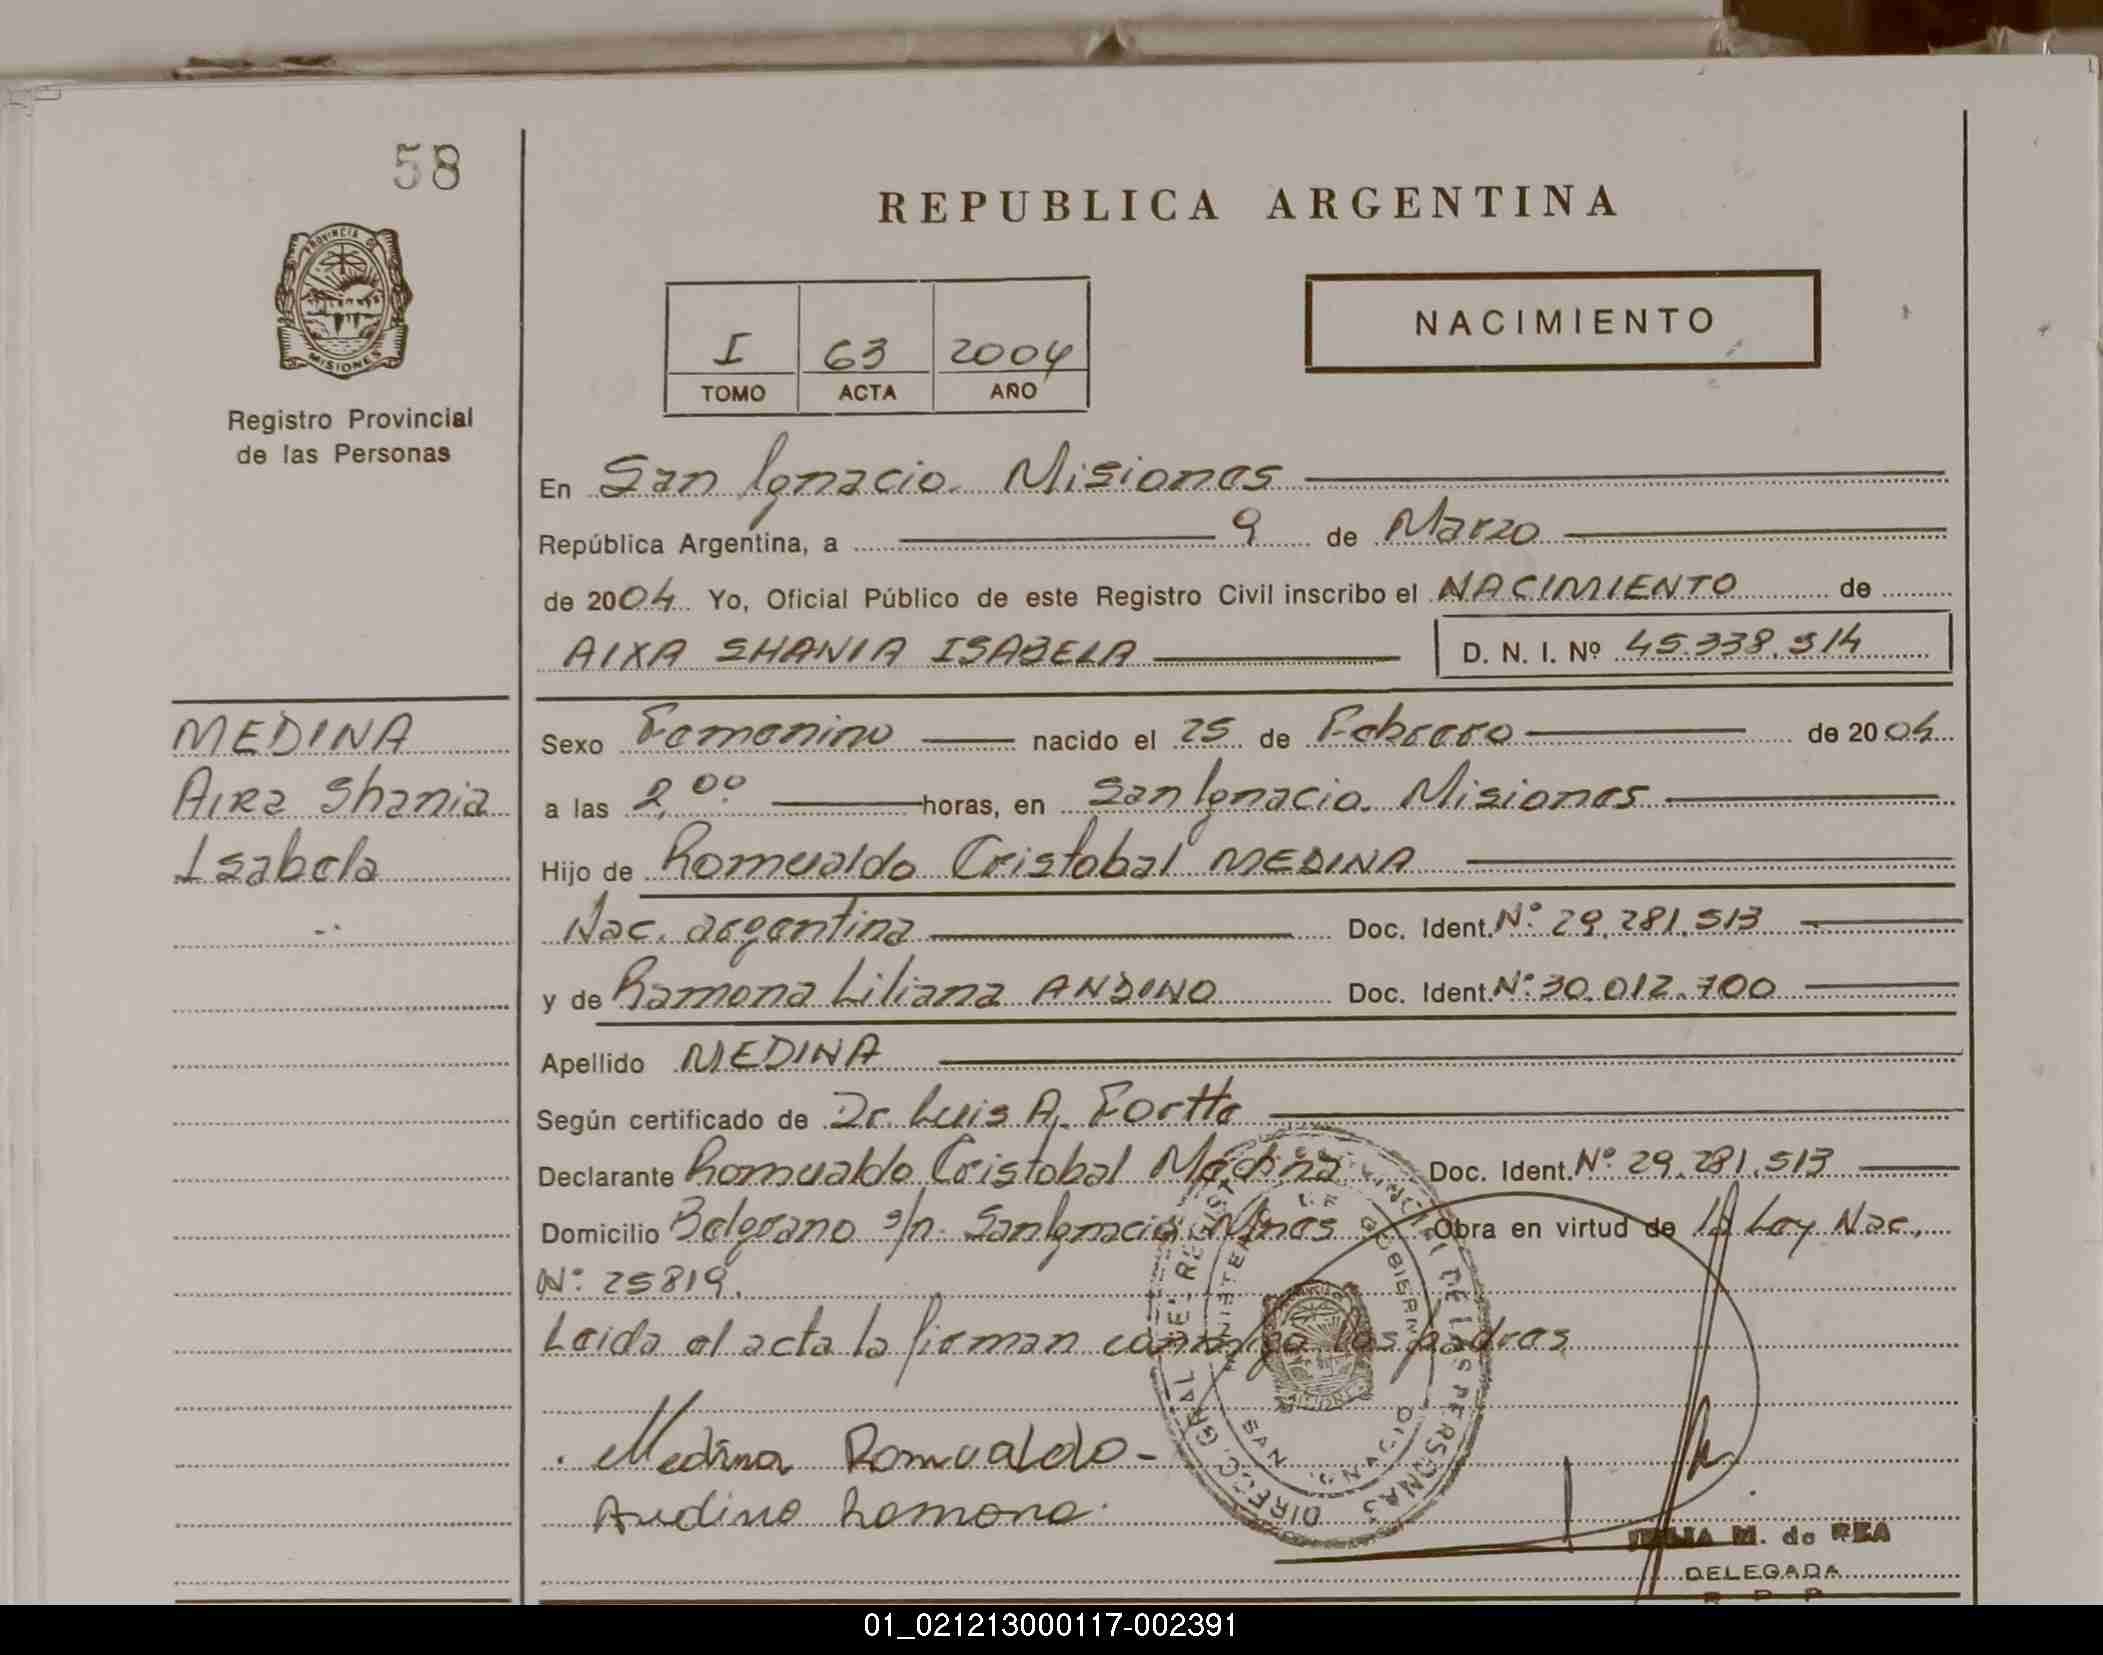 58
REPUBLICA ARGENTINA
PROVINCIA DE
MISIONES
Registro Provincial
de las Personas
I 63 2004
TOMO ACTA AÑO
NACIMIENTO
En San Ignacio. Misiones
República Argentina, a 9 de Marzo
de 2004. Yo, Oficial Público de este Registro Civil inscribo el NACIMIENTO de
AIXA SHANIA ISABELA D. N. I. Nº 45.338.314
MEDINA
Aixa Shania
Isabela
Sexo Femenino nacido el 25 de Febrero de 2004
a las 2,00 horas, en San Ignacio. Misiones
Hijo de Romualdo Cristobal MEDINA
Nac. argentina Doc. Ident. Nº 29.281.513
y de Ramona Liliana ANDINO Doc. Ident. Nº 30.012.700
Apellido MEDINA
Según certificado de Dr. Luis A.
Declarante Romualdo Cristobal Medina Doc. Ident. Nº 29.281.513
Domicilio Belgrano s/n. San Ignacio Mnes Obra en virtud de la Ley Nac.
Nº 25819.
Leida el acta la firman conmigo los padres
Medina Romualdo-
Andino Ramona.
DIREC. GRAL. DEL REGISTRO PROVINCIAL DE LAS PERSONAS
MINISTERIO DE GOBIERNO
SAN IGNACIO
M. de REA
DELEGADA
R P P
01_021213000117-002391